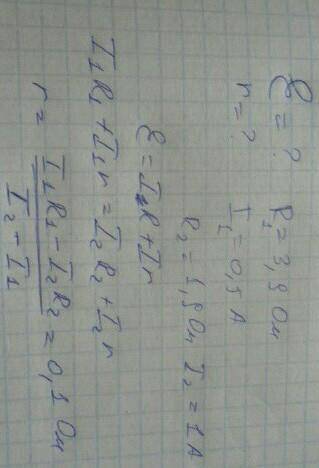 ℰ = ? R₁ = 3,9 Ом
r = ? I₁ = 0,5 А
R₂ = 1,9 Ом I₂ = 1 А
ℰ = IR + Ir
I₁R₁ + I₁r = I₂R₂ + I₂r
r = (I₁R₁ - I₂R₂) / (I₂ - I₁) = 0,1 Ом